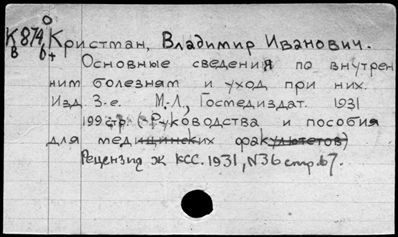 К874, Кристман, Владимир Иванович.
Основные сведения по внутрен
ним болезням и уход при них.
Изд. 3-е. М-Л, Госмедиздат. 1931
199 стр. (Руководства и пособия
для медицинских факультетов)
Рецензия ж КСС. 1931, N36 стр. 67.